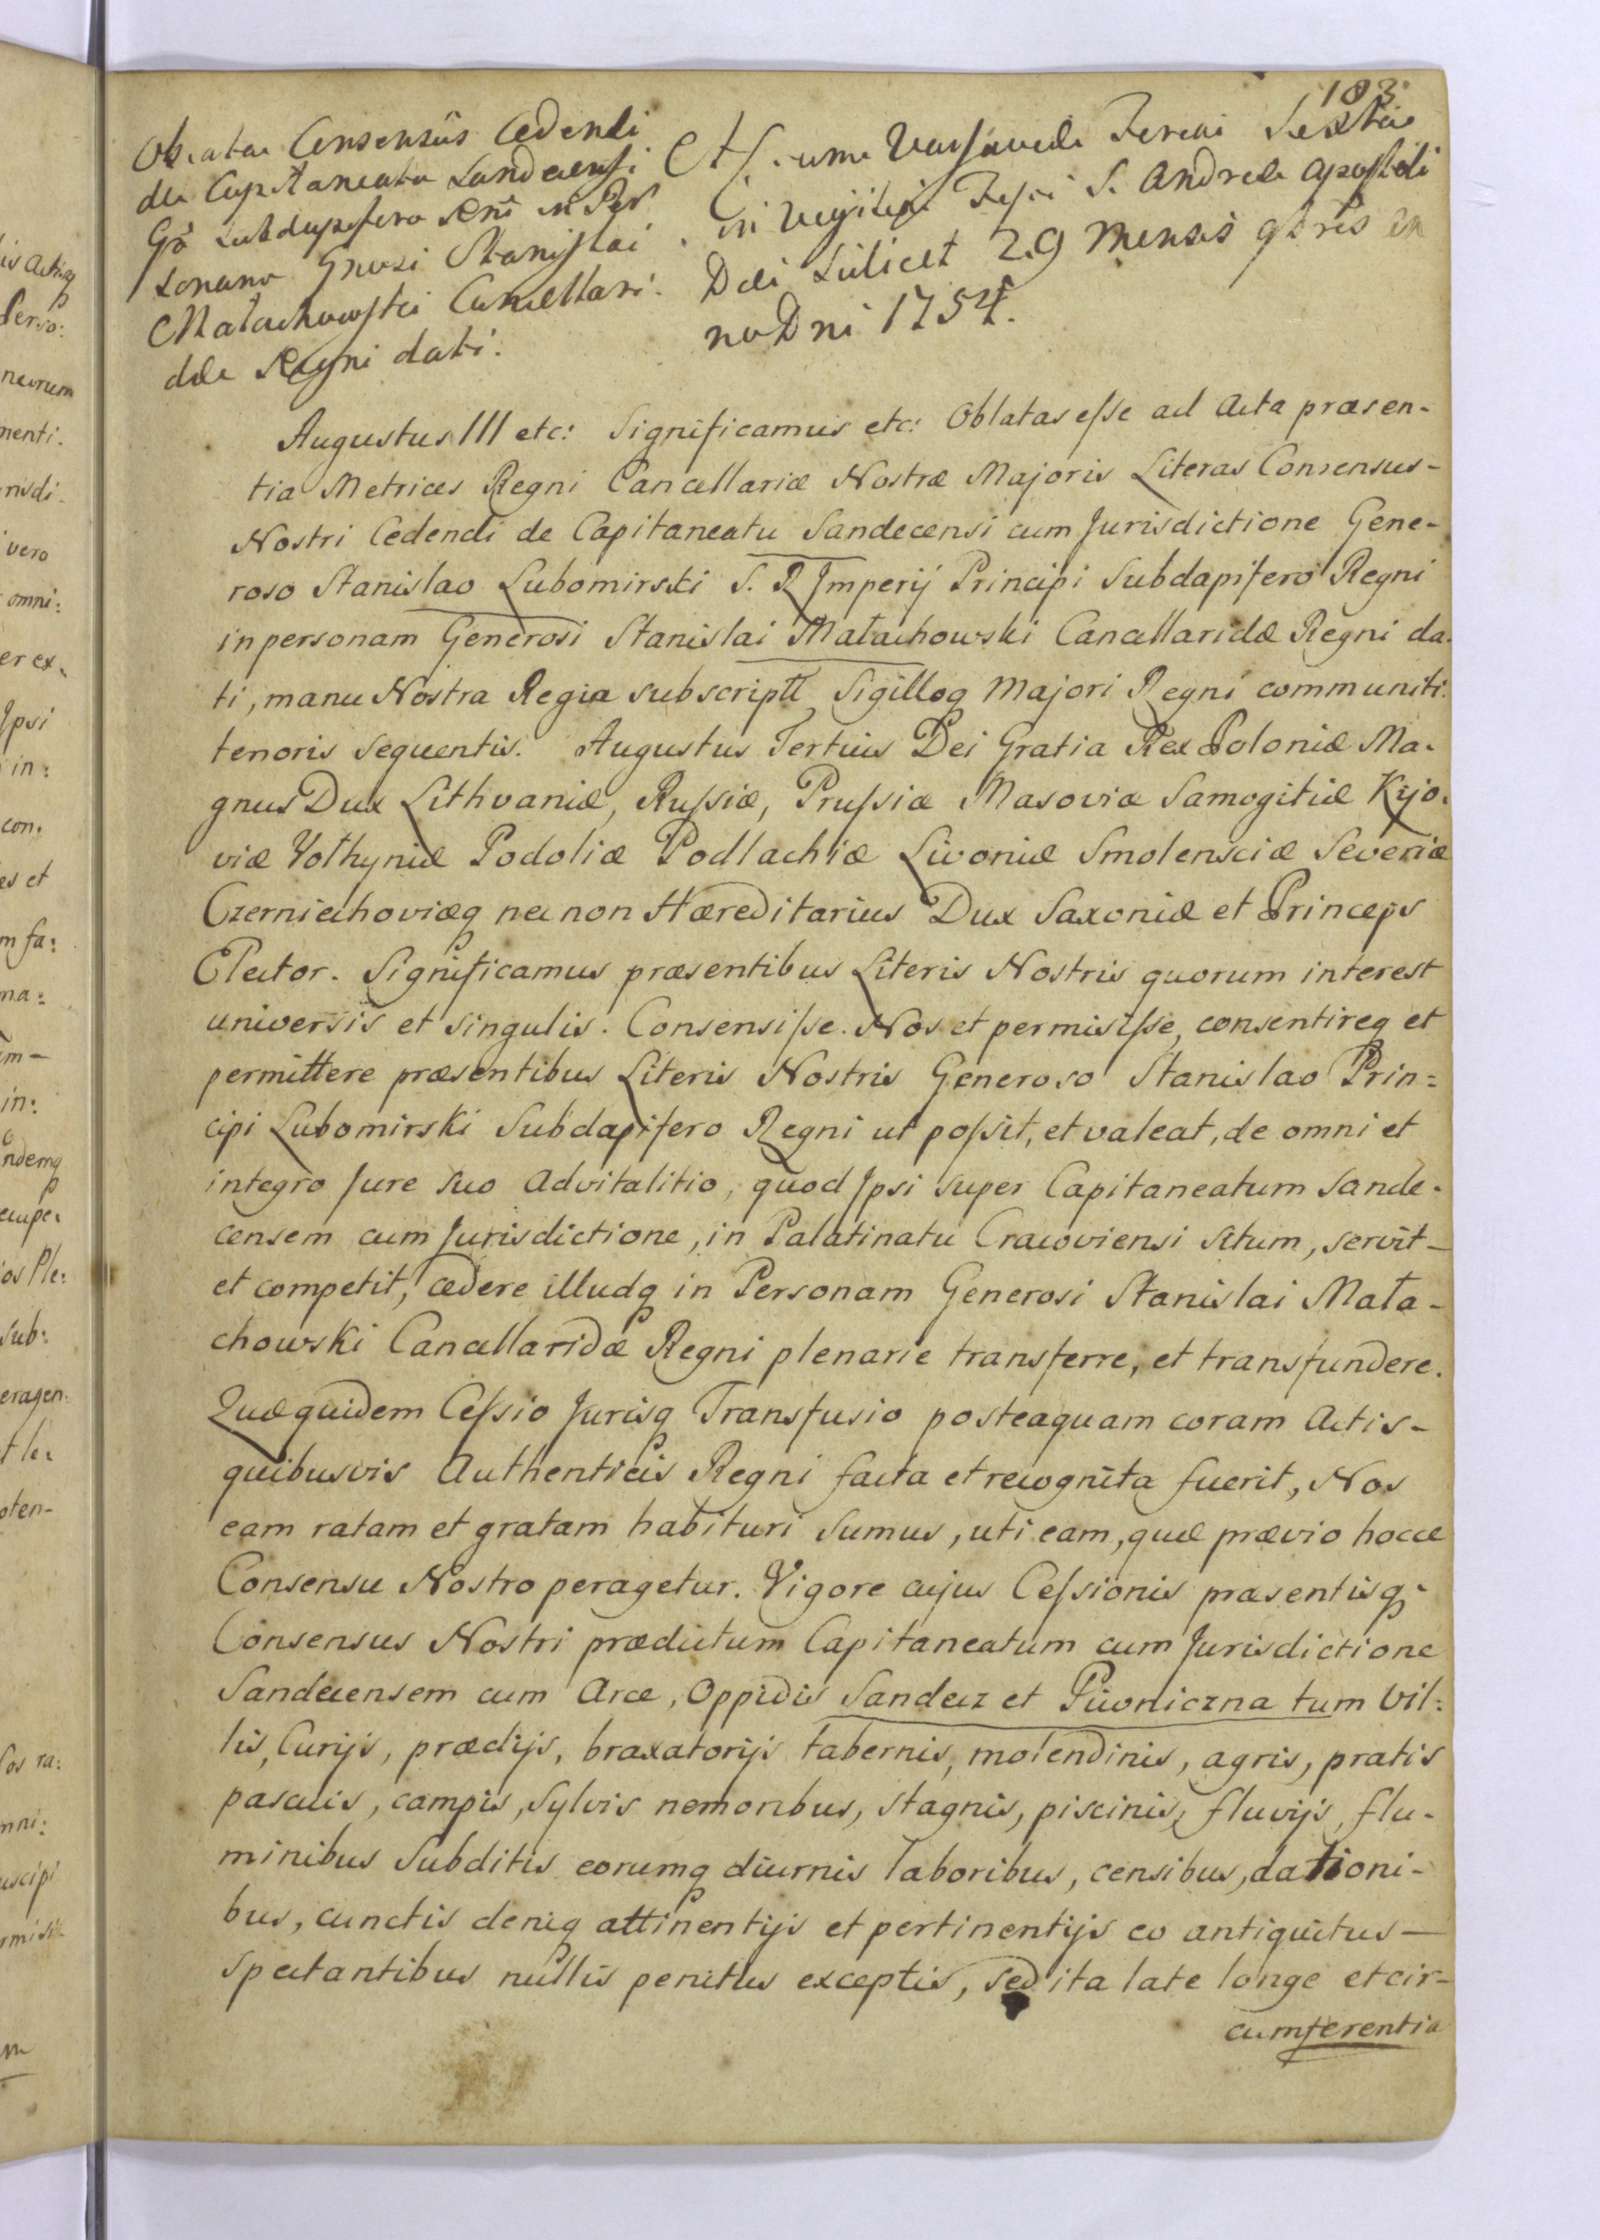 183
Oblatae Consensûs Cedendi
de Capitaneatu Sandecensi
Gŏ Subdapifero Regni in Per
sonam Gnosi Stanislai
Małachowski Cancellari-
dae Regni dati.
Actum Varsaviae Feria Sexta
in Vigilia Festi S. Andreae Apostoli
Die scilicet 29 Mensis 9bris An
no Dni 1754.
Augustus III etc: Significamus etc: Oblatas esse ad Acta præsen-
tia Metrices Regni Cancellariæ Nostræ Majoris Literas Consensus-
Nostri Cedendi de Capitaneatu Sandecensi cum Jurisdictione Gene-
roso Stanislao Lubomirski S. R Imperij Principi Subdapifero Regni
in personam Generosi Stanislai Małachowski Cancellaridæ Regni da-
ti, manu Nostra Regia subscripti Sigilloq Majori Regni communiti.
tenoris sequentis. Augustus Tertius Dei Gratia Rex Poloniæ Ma-
gnus Dux Lithvaniæ, Russiæ, Prussiæ Masoviæ Samogitiæ Kijo-
viæ Volhyniæ Podoliæ Podlachiæ Livoniæ Smolensciæ Severiæ
Czerniechoviæq nec non Hæreditarius Dux Saxoniæ et Princeps
Elector. Significamus præsentibus Literis Nostris quorum interest
universis et singulis. Consensisse. Nos et permisisse, consentireq et
permittere præsentibus Literis Nostris Generoso Stanislao Prin=
cipi Lubomirski Subdapifero Regni ut possit, et valeat, de omni et
integro Jure suo Advitalitio, quod Ipsi super Capitaneatum Sande-
censem cum Jurisdictione, in Palatinatu Cracoviensi situm, servit-
et competit, cedere illudq in Personam Generosi Stanislai Mała-
chowski Cancellaridæ Regni plenarie transferre, et transfundere.
Quæquidem Cessio Jurisq Transfusio posteaquam coram Actis-
quibusvis Authenticis Regni facta et recognita fuerit, Nos
eam ratam et gratam habituri sumus, uti eam, quæ prævio hocce
Consensu Nostro peragetur. Vigore cujus Cessionis præsentisq
Consensus Nostri prædictum Capitaneatum cum Jurisdictione
Sandecensem cum Arce, Oppidis Sandecz et Piwniczna tum Vil=
lis, Curijs, prædijs, braxatorijs tabernis, molendinis, agris, pratis
pascuis, campis, sylvis nemoribus, stagnis, piscinis, fluvijs, flu-
minibus Subditis eorumq diurnis laboribus, censibus, dationi-
bus, cunctis deniq attinentijs et pertinentijs eo antiquitus-
spectantibus nullis penitus exceptis, sed ita late longe et cir-
cumferentia